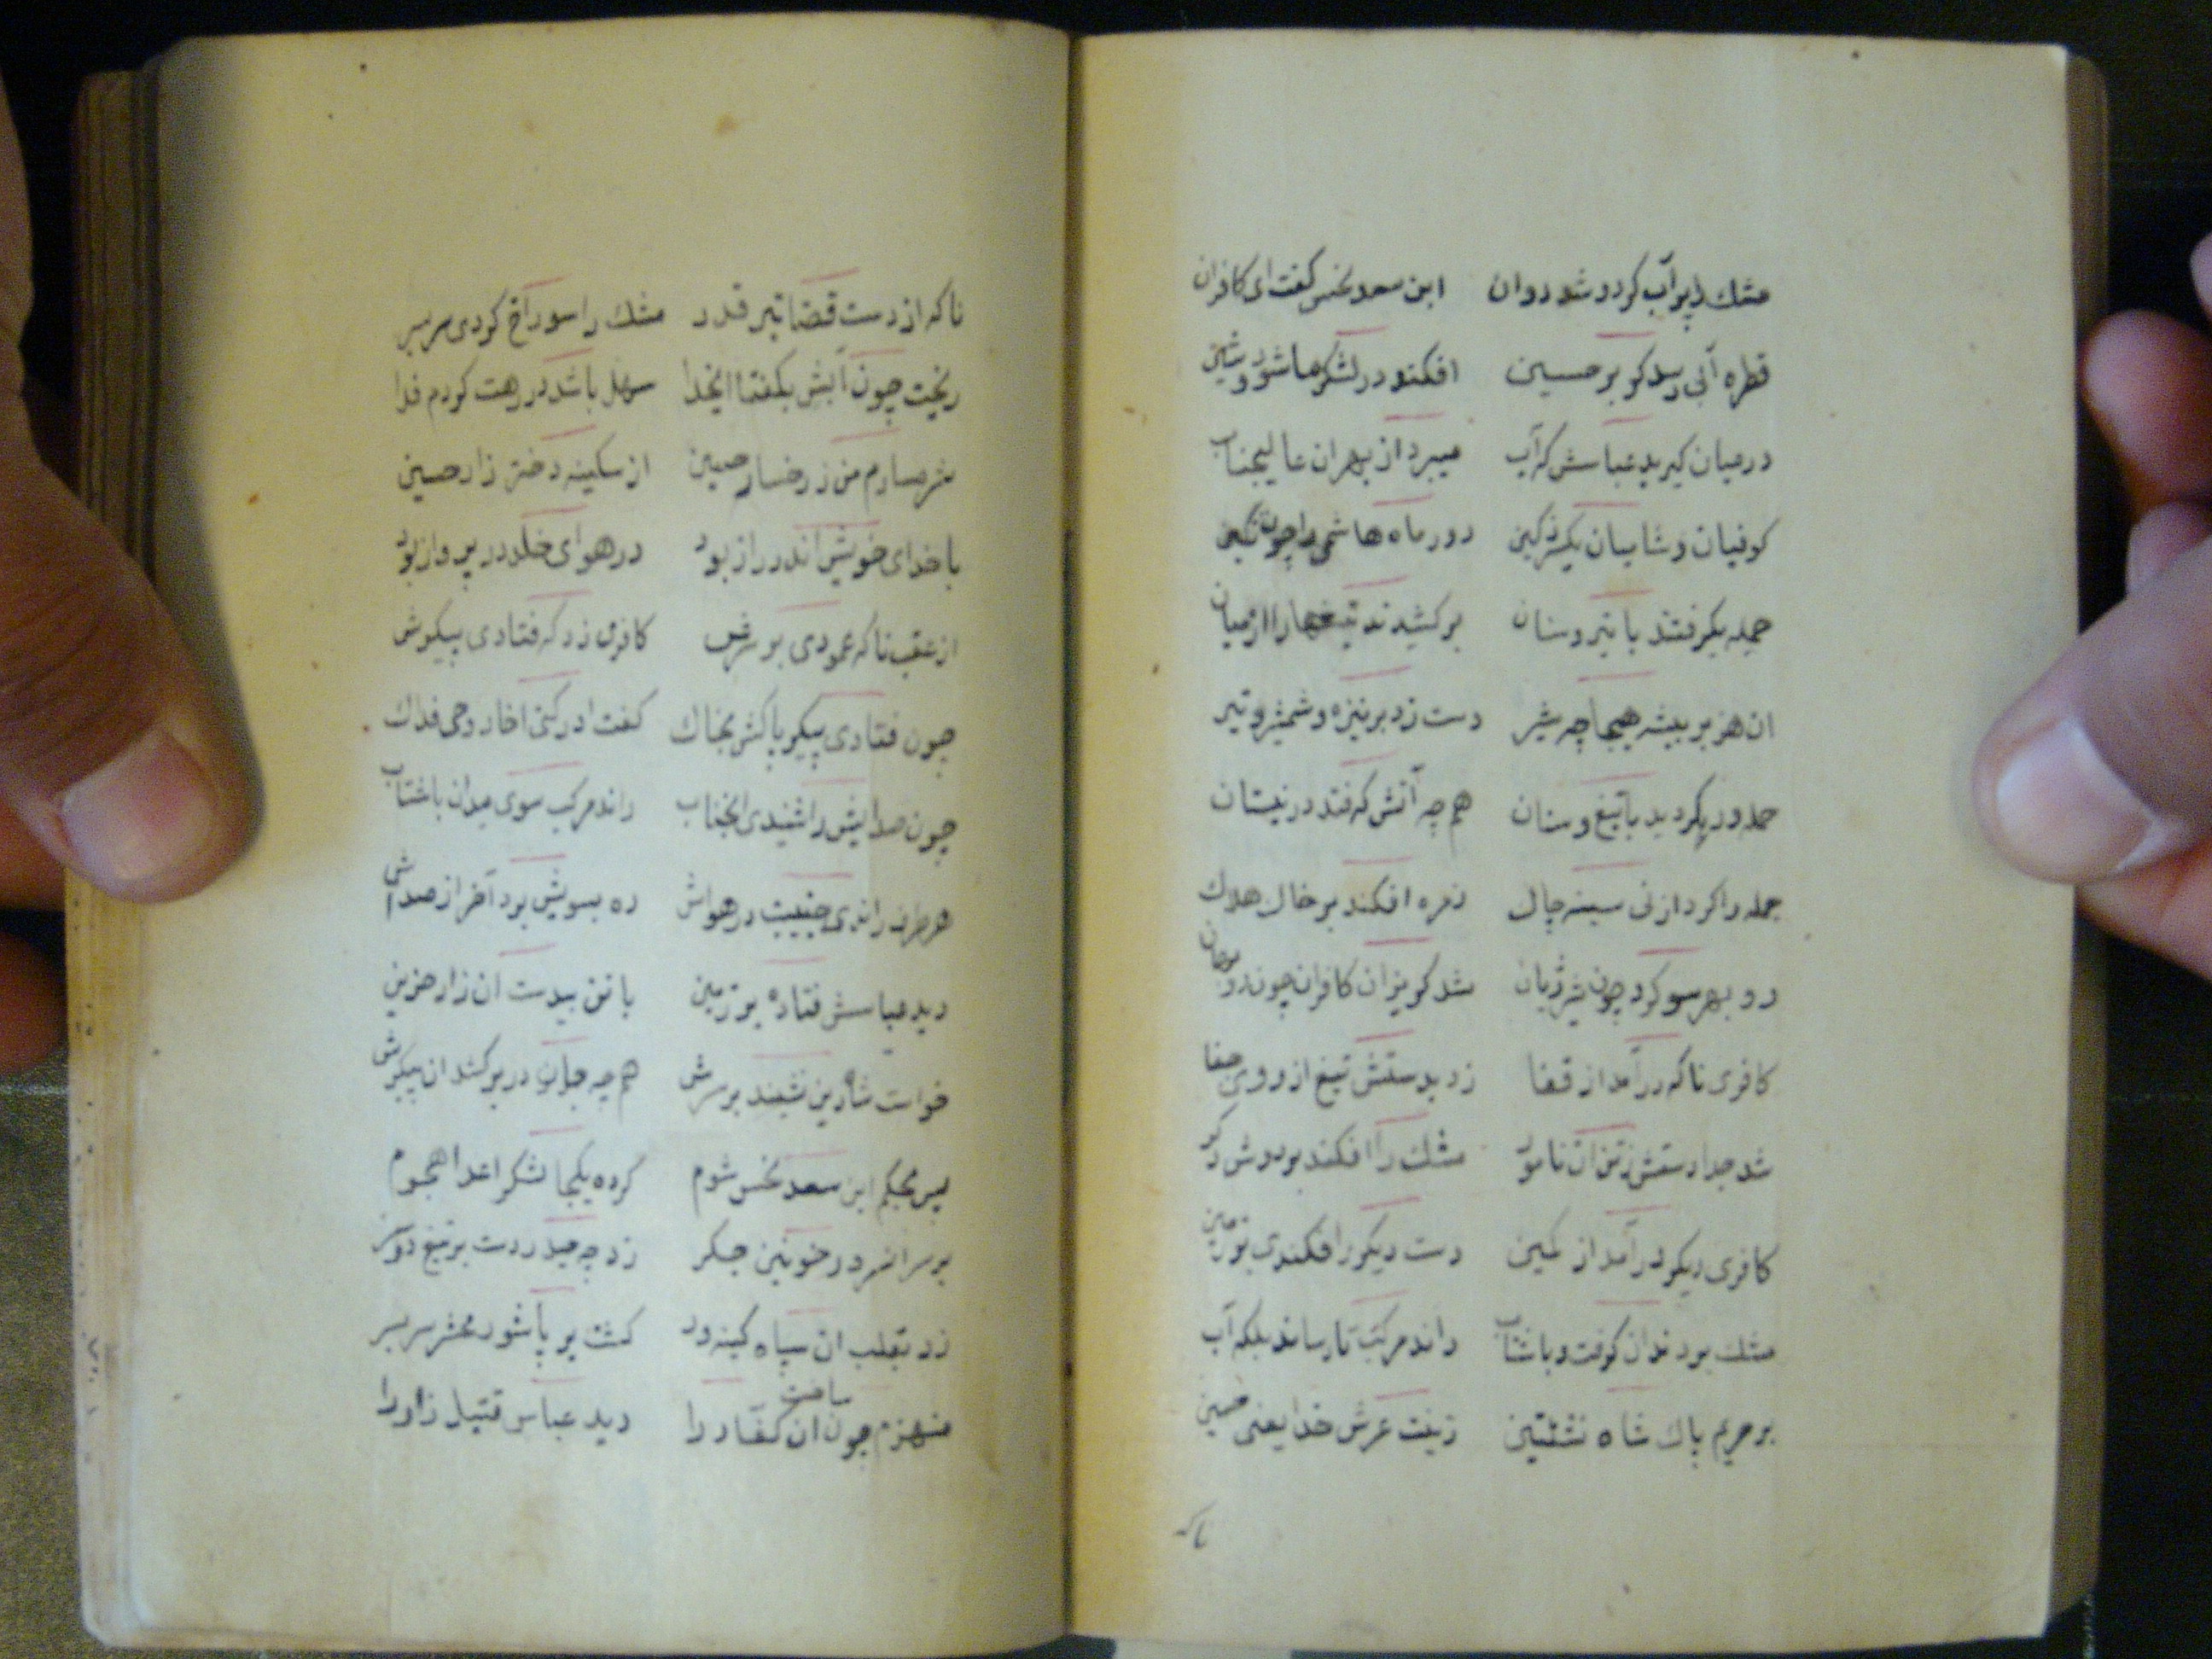 مشك را پر آب كرد و شد روان ابن سعد نحس كفت ای كافران
قطره آبی رسد كر بر حسین افكند در لشكر ما شور و شین
در میان كیرید عباسش كه آب میبرد از بهر ان عالیجناب
كوفیان و شامیان یكسر ز كین دور ماه هاشمی را چون نكین
جمله بكرفتند با تیر و سنان بر كشیدند تیغها را از میان
ان هزبر بیشه هیجا چه شیر دست زد بر نیزه و شمشیر و تیر
حمله ور بكردید با تیغ و سنان هم چه آتش كه فتد در نیستان
جمله را كرد از نی سینه چاك زمره افكند بر خاك هلاك
رو بهر سو كرد چون شیر ژیان شد كریزان كافران چون روبهان
كافری ناكه در آمد از قفا زد بدستش تیغ از روی جفا
شد جدا دستش ز تن ان نامور مشك را افكند بر دوش دكر
كافری دیكر در آمد از كمین دست دیكر را فكندی بر زمین
مشك بر دندان كرفت و با شتاب راند مركب تا رساند بلكه آب
بر حریم پاك شاه نشئتین زینت عرش خدا یعنی حسین
ناكه
ناكه از دست قضا تیر قدر مشك را سوراخ كردی سر بسر
ریخت چون آبش بكفتا ایخدا سهل باشد در رهت كردم فدا
شرمسارم من ز رخسار حسین از سكینه دختر زار حسین
با خدای خویش اندر راز بود در هوای خلد در پرواز بود
از عقب ناكه عمودی بر سرش كافری زد كه فتادی پیكرش
چون فتادی پیكر پاكش بخاك كفت ادركنی اخا روحی فداك
چون صدایش را شنیدی انجناب راند مركب سوی میدان با شتاب
هر طرف راندی جنیبت در هواش ره بسویش برد آخر از صداش
دید عباسش فتاده بر زمین با تن بیدست ان زار حزین
خواست شاه دین نشیند بر سرش هم چه جان در بر كشد ان پیكرش
پس بحكم ابن سعد نحس شوم كرده یكجا لشكر اعدا هجوم
بر سر انسرور خونین جكر زد چه حیدر دست بر تیغ دو سر
زد بقلب ان سپاه كینه ور كشت بر پا شور محشر سر بسر
منهزم چون ساخت ان كفار را دید عباس قتیل زار را